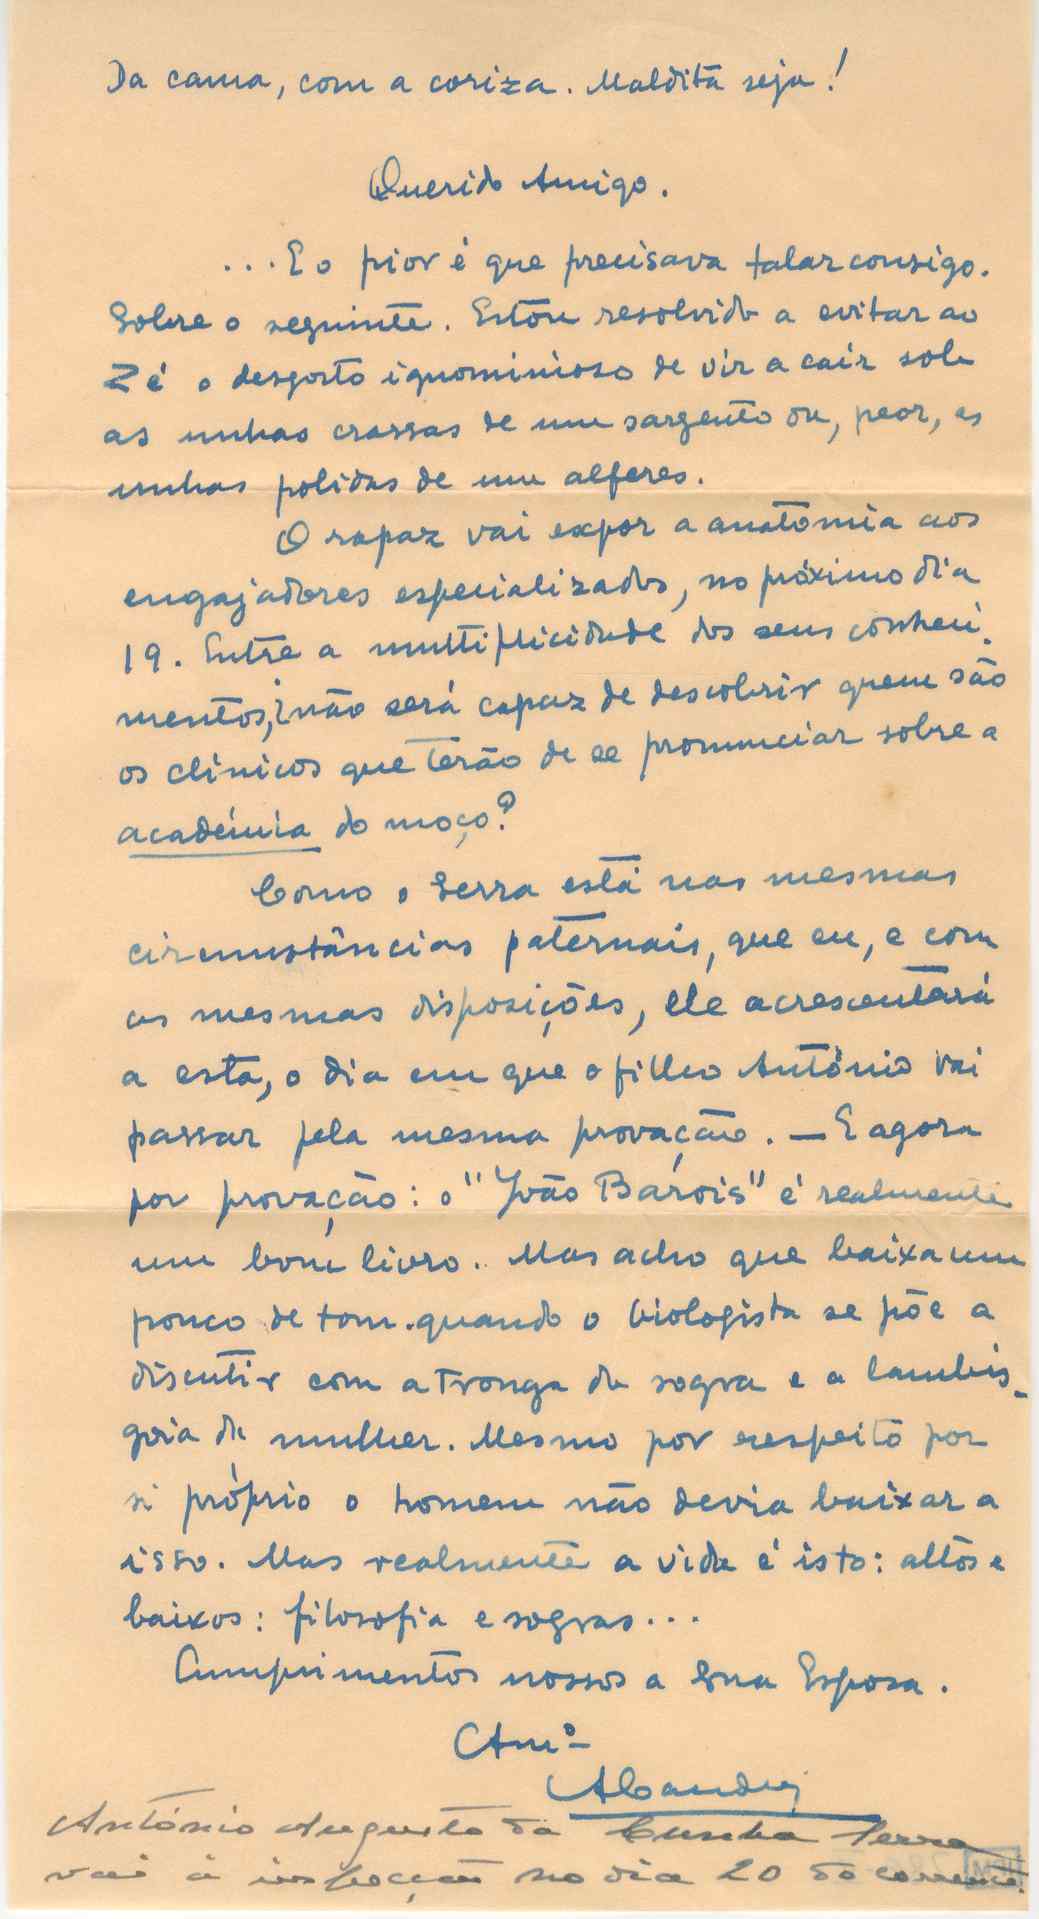 Da cama, com a coriza. Maldita seja!
Querido Amigo.
...E o pior é que precisava falar consigo.
Sobre o seguinte. Estou resolvido a evitar ao
Zé o desgosto ignominioso de vir a cair sob
as unhas crassas de um sargento ou, peor, as
unhas polidas de um alferes.
O rapaz vai expor a anatomia aos
engajadores especializados, no próximo dia
19. Entre a multiplicidade dos seus conheci-
mentos, não será capaz de descobrir quem são
os clínicos que terão de se pronunciar sobre a
academia do moço?
Como o Serra está nas mesmas
circunstâncias paternais, que eu, e com
as mesmas disposições, ele acrescentará
a esta, o dia em que o filho António vai
passar pela mesma provação. — E agora
por provação: o "João Barois" é realmente
um bom livro. Mas acho que baixa um
pouco de tom quando o biologista se põe a
discutir com a tronga da sogra e a lambis-
goia da mulher. Mesmo por respeito por
si próprio o homem não devia baixar a
isso. Mas realmente a vida é isto: altos e
baixos: filosofia e sogras...
Cumprimentos nossos a Sua Esposa.
Amº
António Augusto da Cunha Serra
vai à inspecção no dia 20 do corrente.